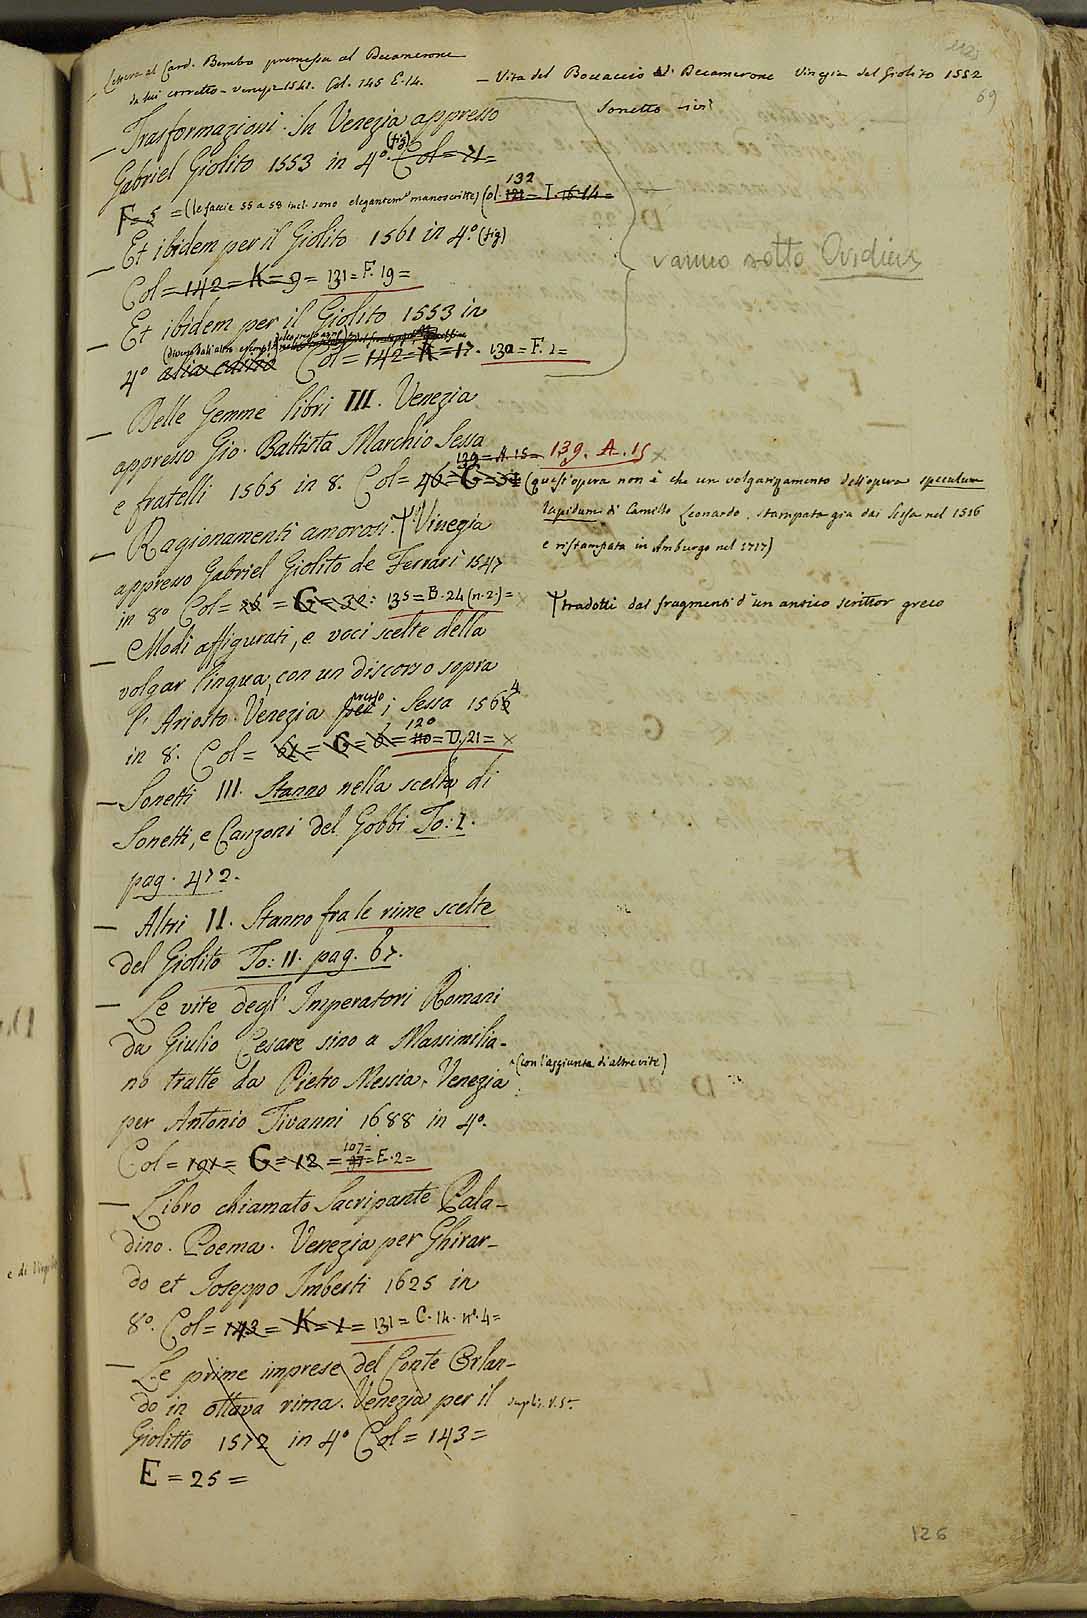 — Lettera al Card. Bembo premessa al Decamerone
da lui corretto - Venez. 1541. Col. 145 E. 14.
— Vita del Boccaccio Decamerone Vinegia del Giolito 1552
Sonetto ivi
69
— Trasformazioni. In Venezia appresso
Gabriel Giolito 1553 in 4.º (fig) Col = 71 =
F = 5 = (le faccie 55 a 58 incl. sono elegantem. manoscritte) Col. 121 132 = I. 16. 14 =
— Et ibidem per il Giolito 1561 in 4.º (fig)
Col = 142 = K = 9 = 131 = F. 19 =
vanno sotto Ovidius
— Et ibidem per il Giolito 1553 in
(diverso dall'altro esempl.
4º Col = 142 = K = 17. 130 = F. 1 =
— Delle Gemme libri III. Venezia
appresso Gio. Battista Marchio Sessa
129 = A. 15 = 139. A. 15
e fratelli 1565 in 8. Col = 46 = G = 34 (quest'opera non è che un volgarizamento dell'opera speculum
lapidum di Camillo Leonardo, stampata gia dai Sessa nel 1516
e ristampata in Amburgo nel 1717)
— Ragionamenti amorosi. † Vinegia
appresso Gabriel Giolito de Ferrari 1547
in 8º Col = 26 = G = 32 = 135 = B. 24 (n. 2) =
† tradotti dai fragmenti d'un antico scrittor greco
— Modi affigurati, e voci scelte della
volgar lingua, con un discorso sopra
l'Ariosto. Venezia per presso i Sessa 1566 4
in 8. Col = 61 = G = 6 = 110 120 = D. 21 = ×
— Sonetti III. Stanno nella scelta di
Sonetti, e Canzoni del Gobbi To: I.
pag. 472.
— Altri II. Stanno fra le rime scelte
del Giolito To: II. pag. 67.
— Le vite degl' Imperatori Romani
da Giulio Cesare sino a Massimilia-
no tratte da Pietro Messia. Venezia (con l'aggiunta di altre vite)
per Antonio Tivanni 1688 in 4º.
Col = 191 = G = 12 = 37 107 = E. 2 =
— Libro chiamato Sacripante Pala-
dino. Poema. Venezia per Ghirar-
do et Joseppo Imberti 1625 in
8º. Col = 143 = K = 1 = 131 = C. 14. nº. 4 =
— Le prime imprese del Conte Orlan-
do in ottava rima. Venezia per il
Giolitto 1572 in 4º Col = 143 =
E = 25 =
126